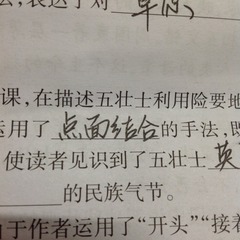 表达了对
课,在描述五壮士利用险要地
运用了点面结合的手法,既
使读者见识到了五壮士英
的民族气节。
由于作者运用了“开头”“接着